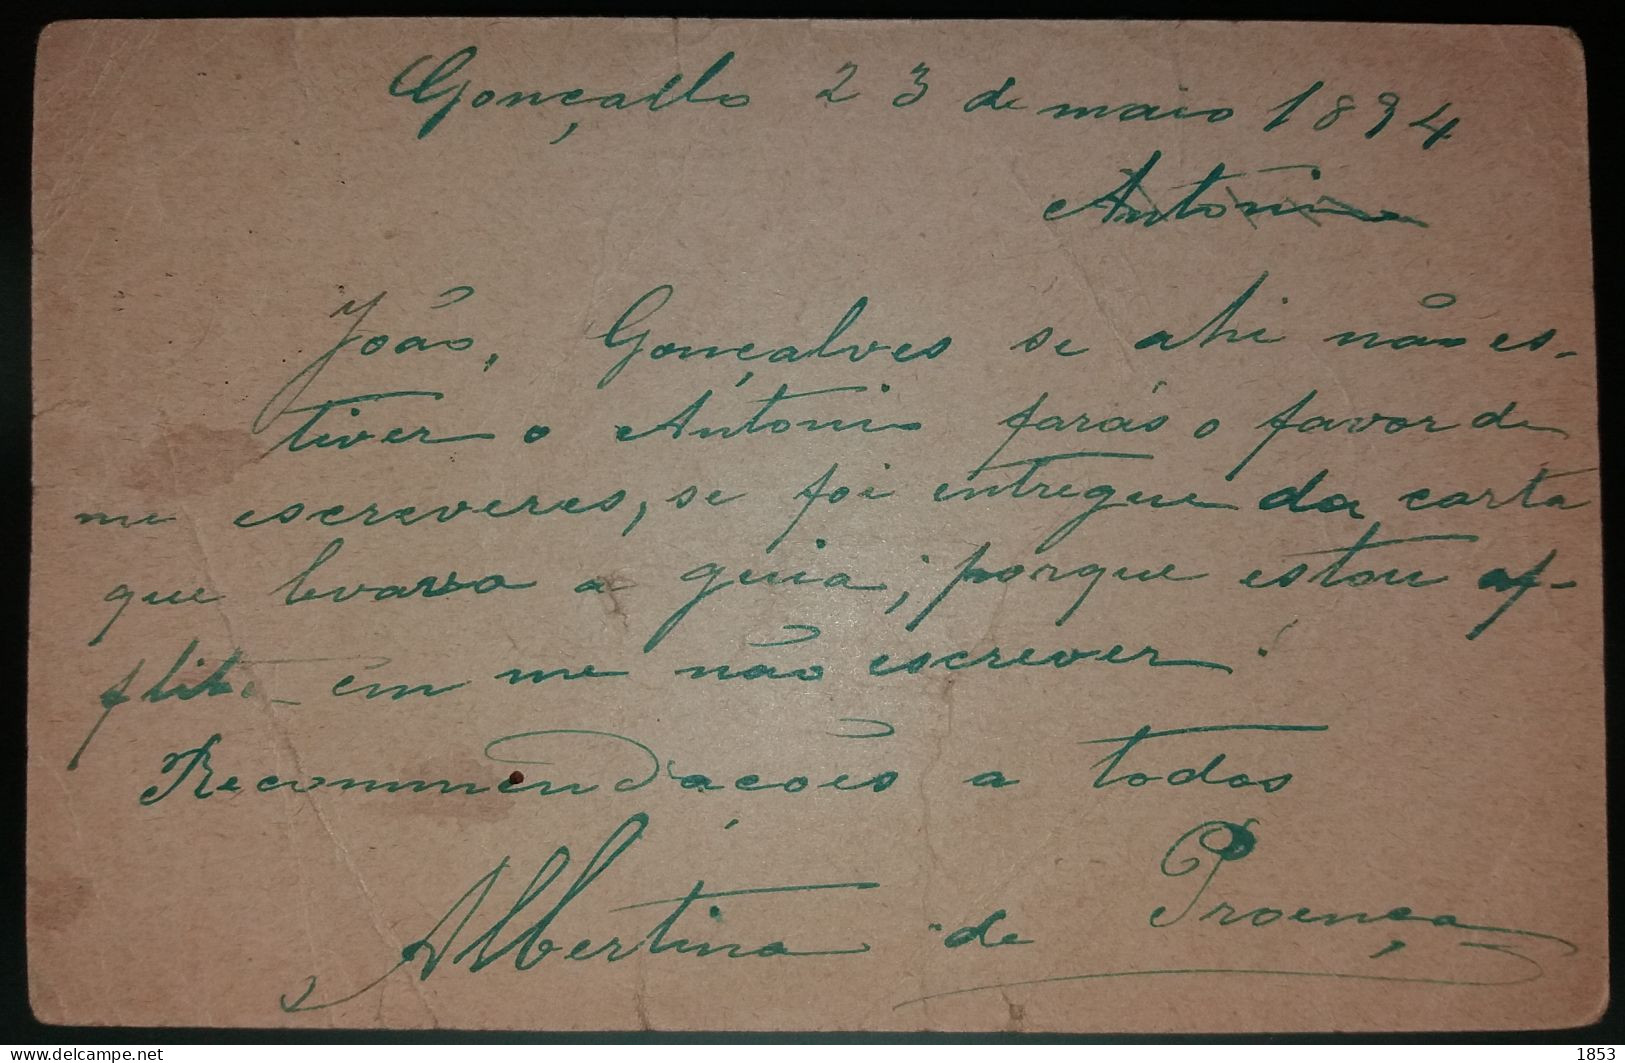 Gonçallo 23 de maio 1894
Antonio
João, Gonçalves se ahi não es-
tiver o Antonio farás o favor de
me escreveres, se foi entregue da carta
que levava a guia; porque estou af-
flita em me não escrever!
Recommendações a todos
Albertina de Proença
delcampe.net
1853